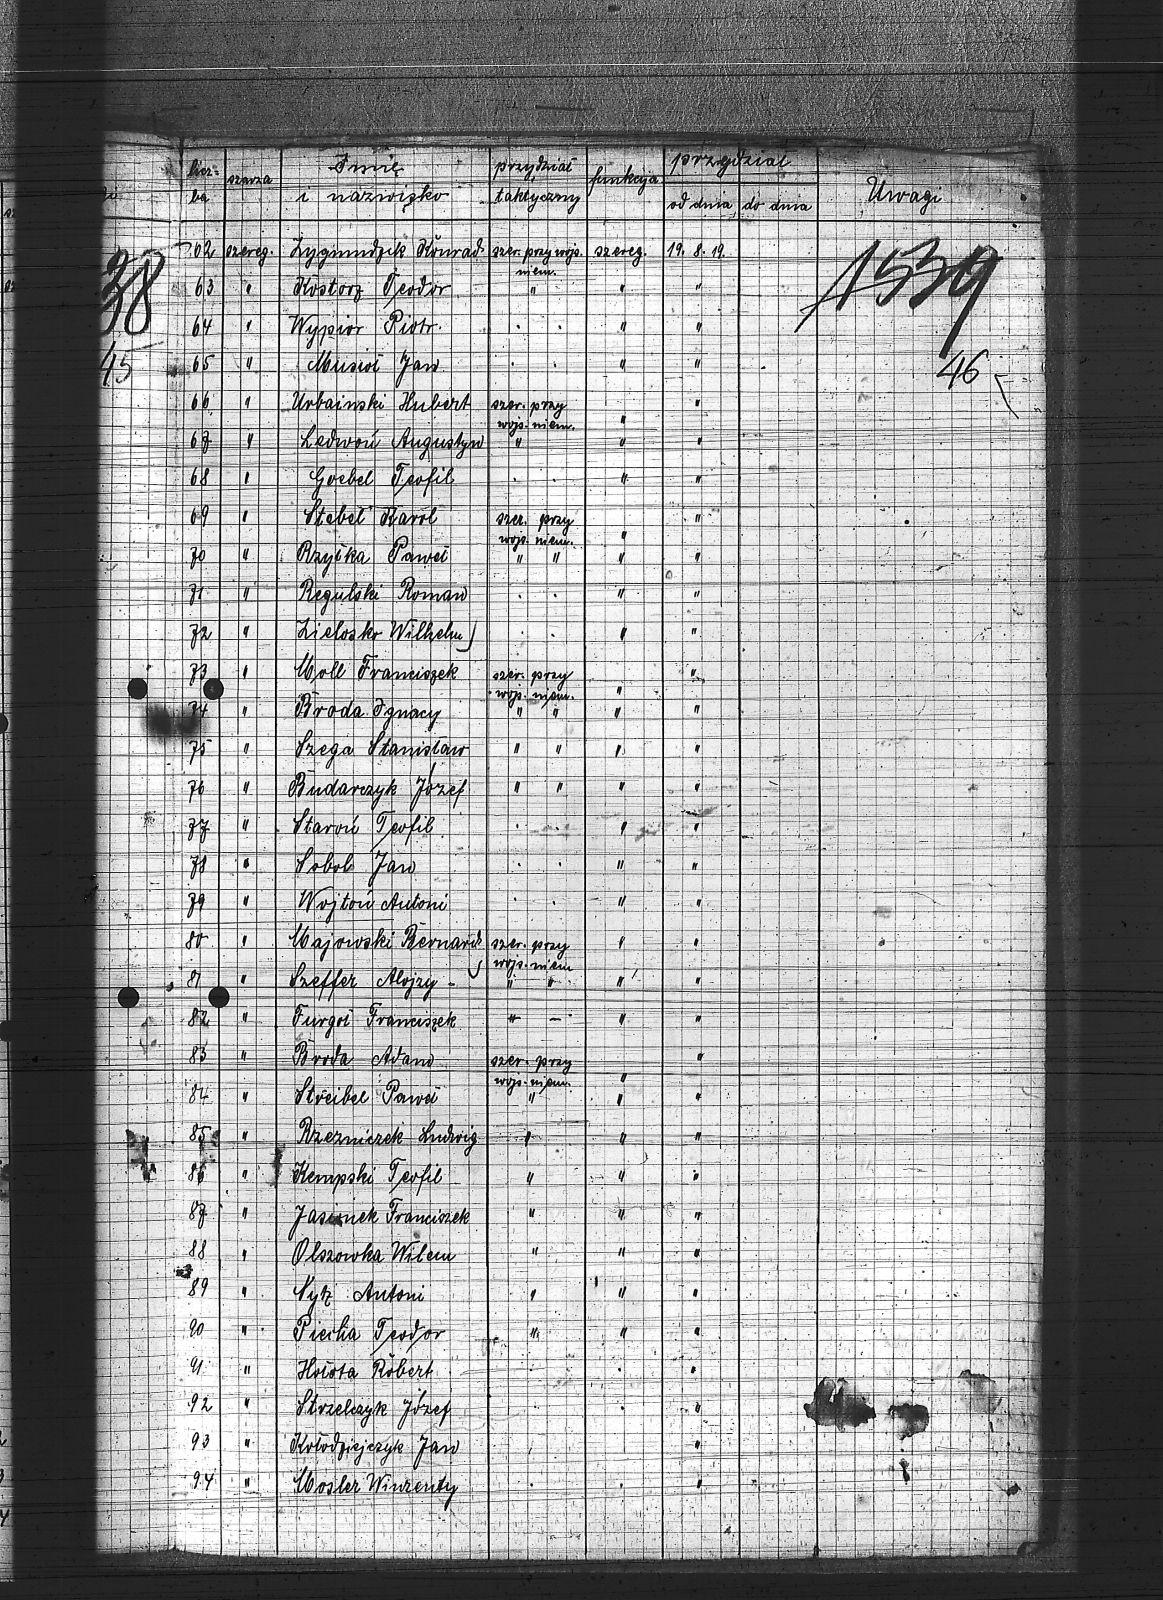 liczba szarża Imię i nazwisko przydział taktyczny funkcja przydział od dnia do dnia Uwagi
38 1539
45 46
62 szereg. Zygmundzik Konrad szer. przy wojs. niem. szereg. 19. 8. 19.
63 " Kostorz Teodor " " "
64 " Wypior Piotr . . " "
65 " Musioł Jan . . " "
66 " Urbainski Hubert szer. przy wojs. niem. " "
67 " Ledwoń Augustyn " " "
68 " Goebel Teofil . . " "
69 " Stebel Karol szer. przy wojs. niem. " "
70 " Rzyśka Paweł " " " "
71 " Regulski Roman . . " "
72 " Zielosko Wilhelm . . " "
73 " Moll Franciszek szer. przy wojs. niem. " "
74 " Broda Ignacy " " " "
75 " Szega Stanisław " " " "
76 " Budarczyk Józef " " " "
77 " Staroń Teofil . . " "
78 " Sobol Jan . . " "
79 " Wojtoń Antoni . . " "
80 " Majowski Bernard szer. przy wojs. niem " "
81 " Szeffer Alojzy - " " " "
82 " Furgoł Franciszek " - " "
83 " Broda Adam szer. przy wojs. niem. " "
84 " Streibel Paweł " " "
85 " Rzezniczek Ludwig " " "
86 " Kempski Teofil " " "
87 " Jasionek Franciszek " " "
88 " Olszowka Wilem " " "
89 " Nytz Antoni " " "
90 " Piecha Teodor " " "
91 " Hołota Robert . . "
92 " Strzelczyk Józef . . "
93 " Kołodziejczyk Jan . . "
94 " Mosler Winzenty . . "